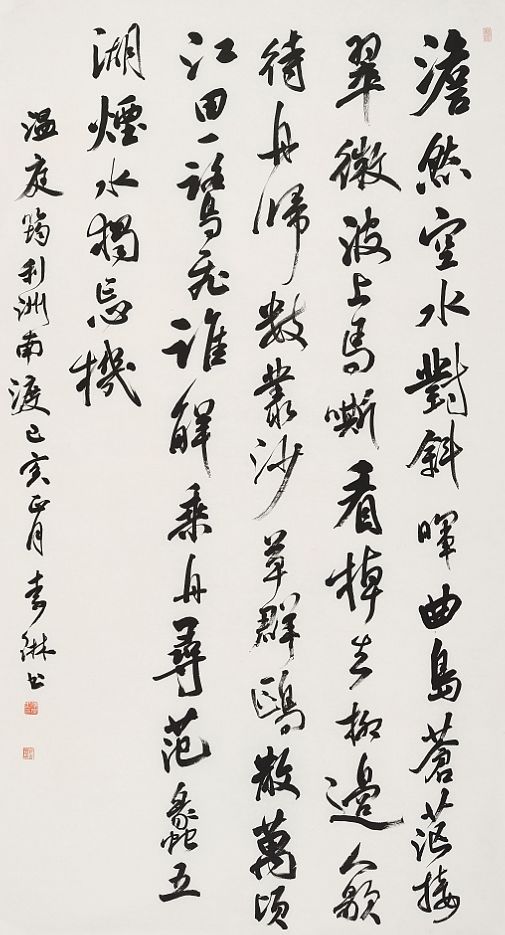 澹然空水對斜暉曲島蒼茫接
翠微波上馬嘶看棹去柳邊人歇
待舟歸數叢沙草群鷗散萬頃
江田一鷺飛誰解乘舟尋范蠡五
湖煙水獨忘機
温庭筠利洲南渡己亥正月琳书